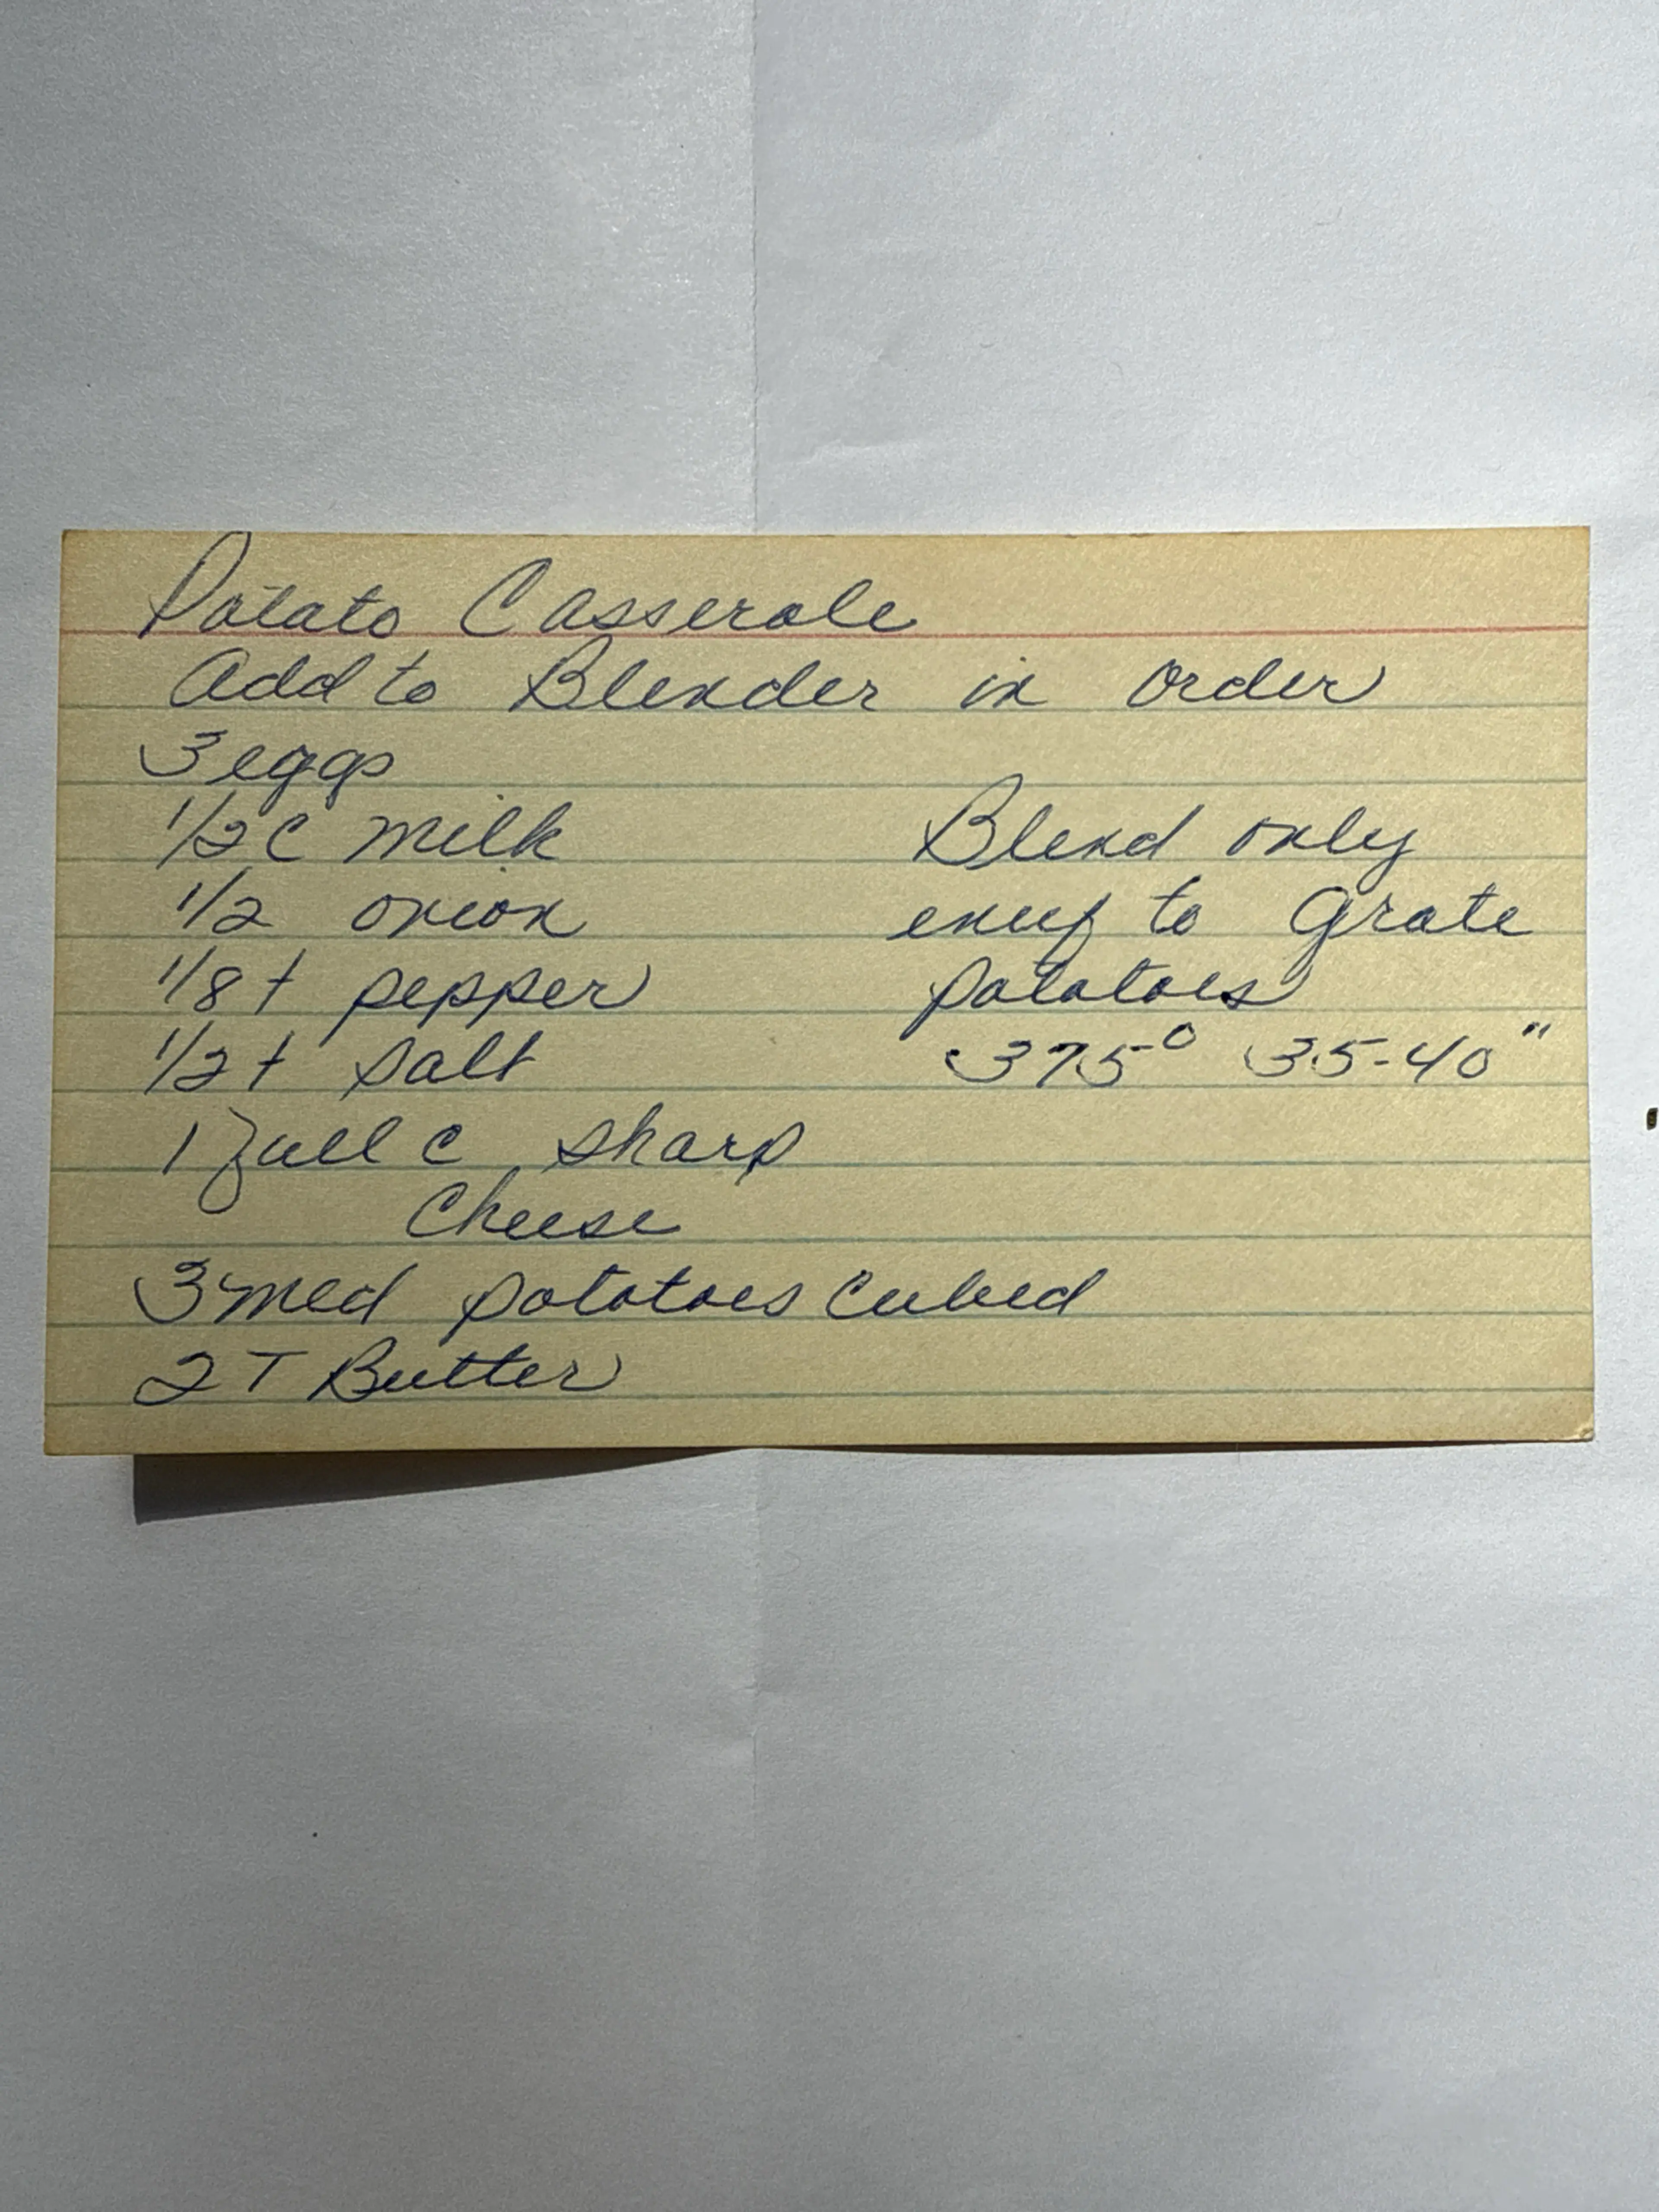 Potato Casserole
Add to Blender in order
3 eggs
1/2 C milk
1/2 onion
1/8 t pepper
1/2 t salt
1 full c sharp
Cheese
3 med potatoes cubed
2 T Butter
Blend only
enuf to Grate
potatoes
375° 35-40"